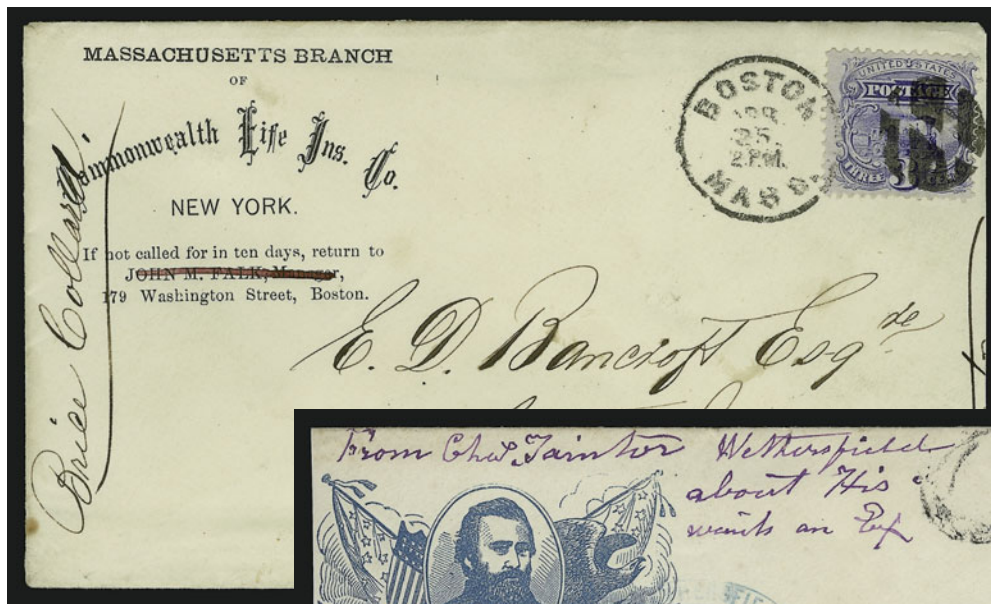 MASSACHUSETTS BRANCH
OF
Commonwealth Life Ins. Co.
NEW YORK.
If not called for in ten days, return to
JOHN M. FALK, Manager,
179 Washington Street, Boston.
BOSTON
25.
2 P.M.
MASS.
UNITED STATES
POSTAGE
THREE
3
E. D. Bancroft Esq
Brice Collard
From Chas Taintor Wethersfield
about His
wants an